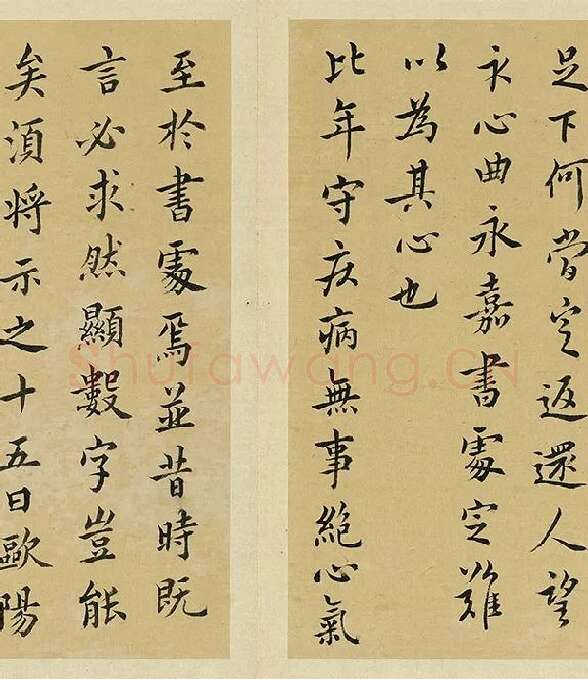 足下何當定返還人望
永心曲永嘉書處定難
以為其心也
比年守疾病無事絕心氣
至於書處焉並昔時既
言必求然顯數字豈能
矣須將示之十五日歐陽
Shufawang.CN